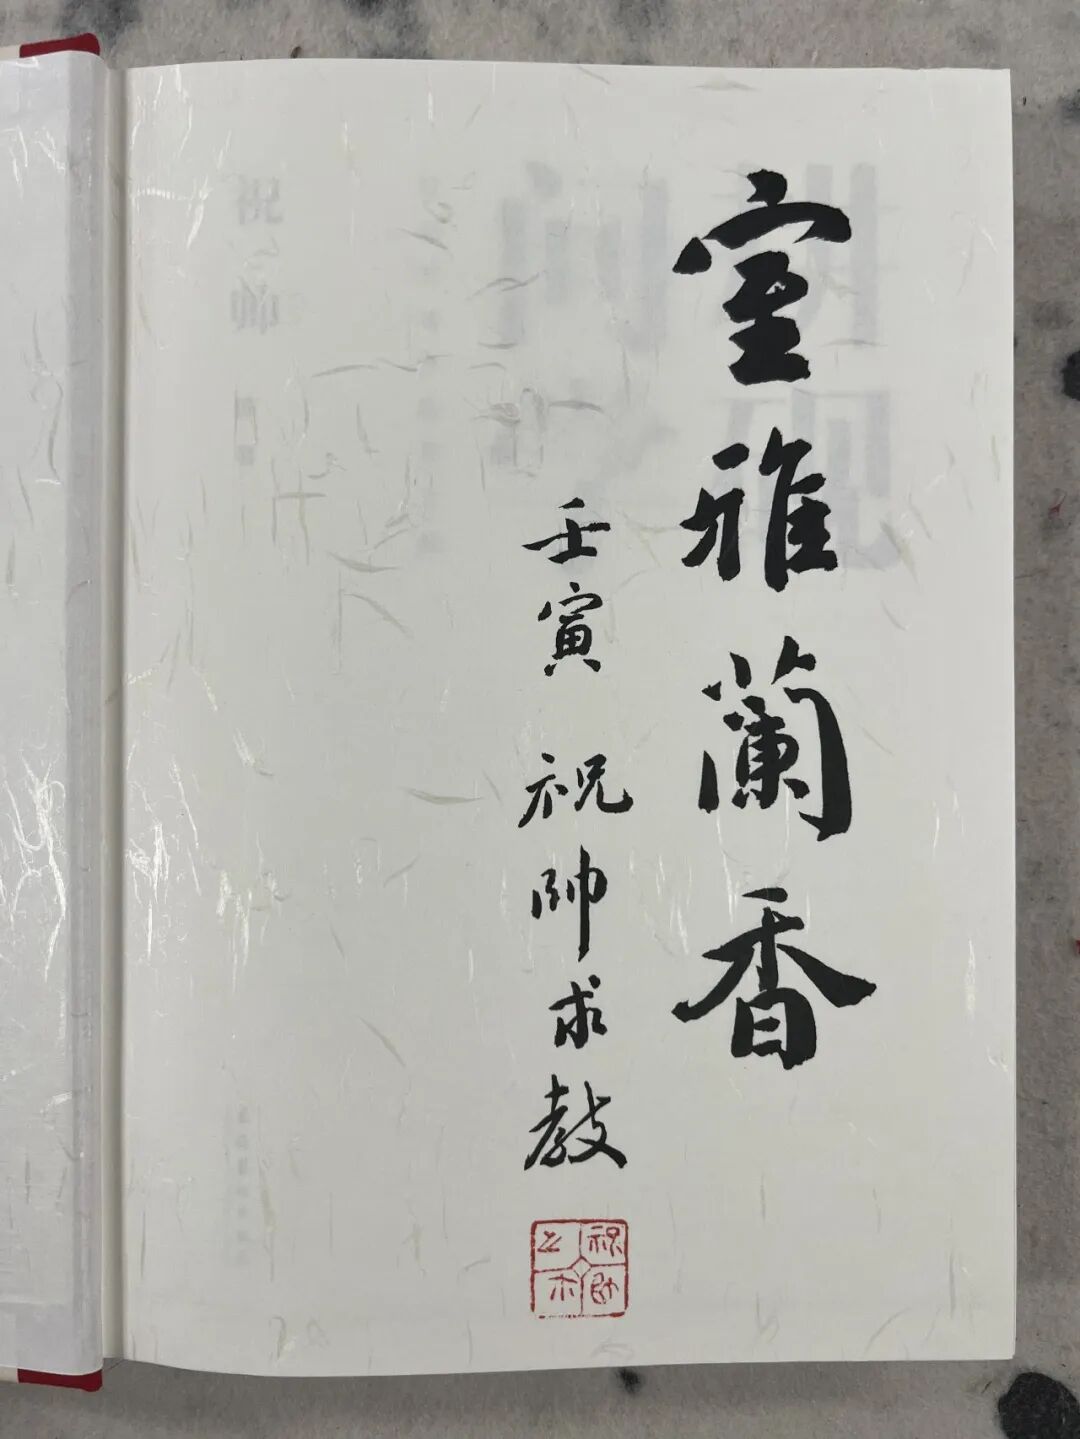 室雅蘭香
壬寅 祝帥求教
祝帥